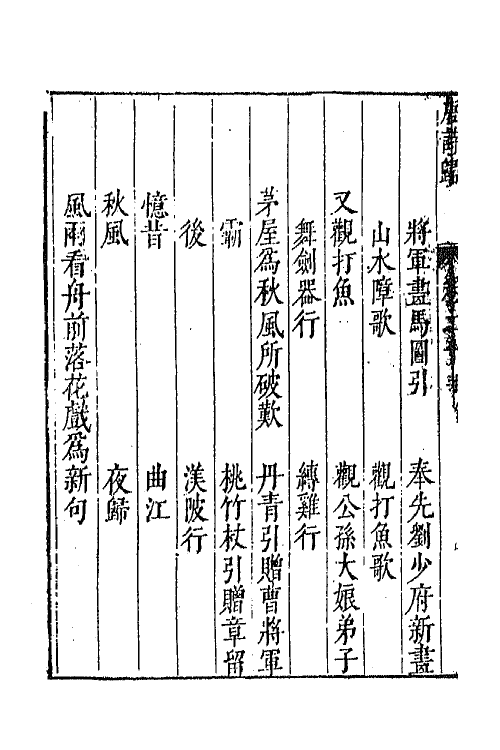 唐詩歸
將軍畫馬圖引　奉先劉少府新畫
山水障歌　觀打魚歌
又觀打魚　觀公孫大娘弟子
舞劍器行　縛雞行
茅屋爲秋風所破歎　丹青引贈曹將軍
霸　桃竹杖引贈章留
後　渼陂行
憶昔　曲江
秋風　夜歸
風雨看舟前落花戲爲新句